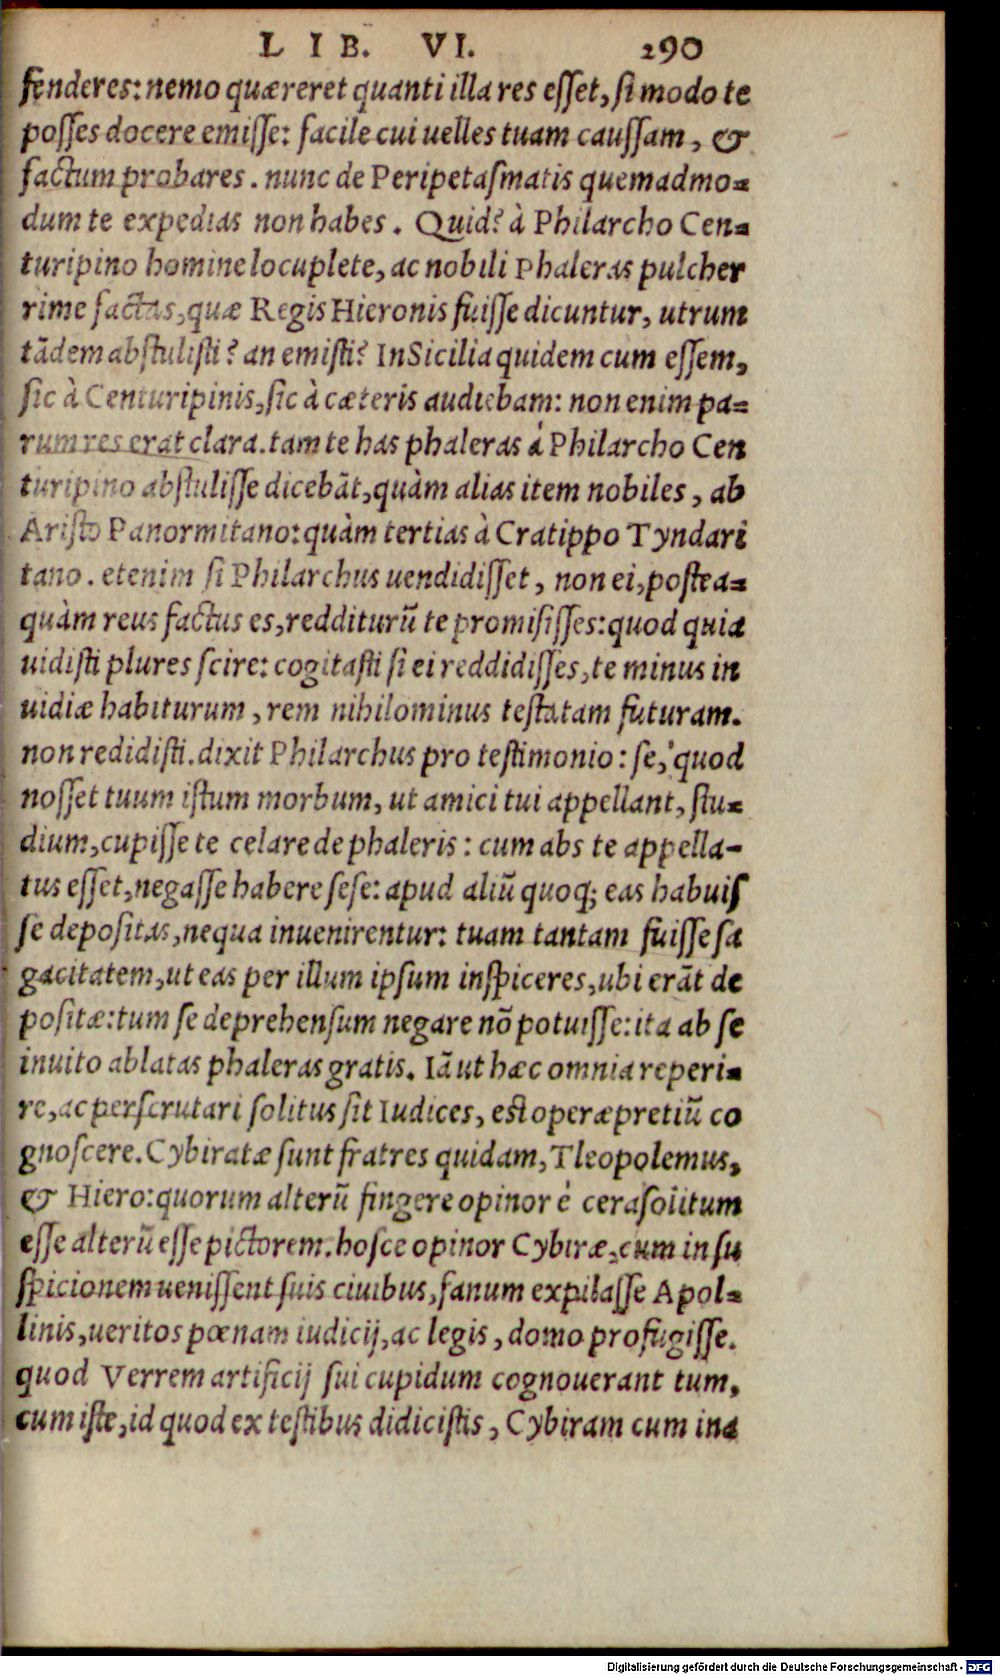 LIB. VI. 290
fenderes: nemo quæreret quanti illa res eſſet, ſi modo te
poſſes docere emiſſe: facile cui uelles tuam cauſſam, &
factum probares. nunc de Peripetaſmatis quemadmo-
dum te expedias non habes. Quid? à Philarcho Cen-
turipino homine locuplete, ac nobili Phaleras pulcher
rime factas, quæ Regis Hieronis fuiſſe dicuntur, utrum
tãdem abſtuliſti? an emiſti? In Sicilia quidem cum eſſem,
ſic à Centuripinis, ſic à cæteris audiebam: non enim pa-
rum res erat clara. tam te has phaleras á Philarcho Cen
turipino abſtuliſſe dicebãt, quàm alias item nobiles, ab
Ariſto Panormitano: quàm tertias à Cratippo Tyndari
tano. etenim ſi Philarchus uendidiſſet, non ei, poſtea-
quàm reus factus es, redditurũ te promiſiſſes: quod quia
uidiſti plures ſcire: cogitaſti ſi ei reddidiſſes, te minus in
uidiæ habiturum, rem nihilominus teſtatam futuram.
non redidiſti. dixit Philarchus pro teſtimonio: ſe, quod
noſſet tuum iſtum morbum, ut amici tui appellant, ſtu-
dium, cupiſſe te celare de phaleris: cum abs te appella-
tus eſſet, negaſſe habere ſeſe: apud aliũ quoq; eas habuiſ
ſe depoſitas, nequa inuenirentur: tuam tantam fuiſſe ſa
gacitatem, ut eas per illum ipſum inſpiceres, ubi erãt de
poſitæ: tum ſe deprehenſum negare nõ potuiſſe: ita ab ſe
inuito ablatas phaleras gratis. Iã ut hæc omnia reperi-
re, ac perſcrutari ſolitus ſit Iudices, eſt operæpretiũ co
gnoſcere. Cybiratæ ſunt fratres quidam, Tleopolemus,
& Hiero: quorum alterũ fingere opinor é cera ſolitum
eſſe alterũ eſſe pictorem. hoſce opinor Cybiræ, cum in ſu
ſpicionem ueniſſent ſuis ciuibus, fanum expilaſſe Apol-
linis, ueritos pœnam iudicij, ac legis, domo profugiſſe.
quod Verrem artificij ſui cupidum cognouerant tum,
cum iſte, id quod ex teſtibus didiciſtis, Cybiram cum ina
Digitalisierung gefördert durch die Deutsche Forschungsgemeinschaft - DFG